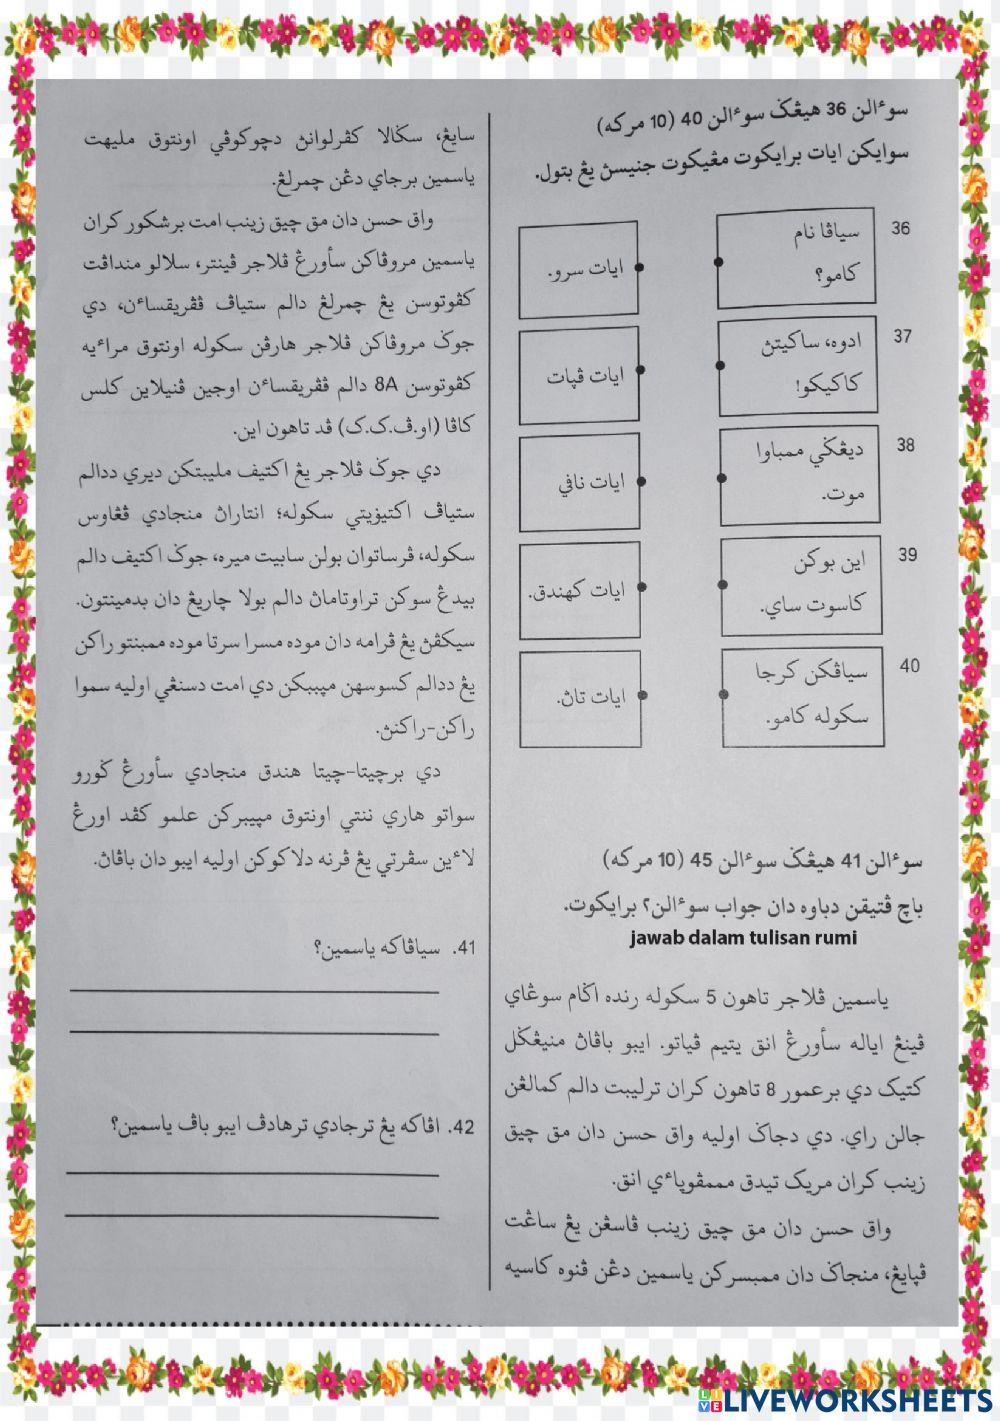 سوءالن 36 هيڠݢ سوءالن 40 (10 مركه)
سوايكن ايات برايكوت مڠيكوت جنيسڽ يڠ بتول.
36
سياڤا نام
كامو؟
ايات سرو.
37
ادوه، ساكيتڽ
كاكيكو!
ايات ڤپات
38
ديڠكي ممباوا
موت.
ايات نافي
39
اين بوكن
كاسوت ساي.
ايات كهندق.
40
سياڤكن كرجا
سكوله كامو.
ايات تاڽ.
سوءالن 41 هيڠݢ سوءالن 45 (10 مركه)
باچ ڤتيقن دباوه دان جواب سوءالن٢ برايكوت.
jawab dalam tulisan rumi
ياسمين ڤلاجر تاهون 5 سكوله رنده اݢام سوڠاي
ڤينڠ اياله سأورڠ انق يتيم ڤياتو. ايبو باڤاڽ منيڠݢل
كتيک دي برعمور 8 تاهون كران ترليبت دالم كمالڠن
جالن راي. دي دجاݢ اوليه واق حسن دان مق چيق
زينب كران مريک تيدق ممڤوپاءي انق.
واق حسن دان مق چيق زينب ڤاسڠن يڠ ساڠت
ڤپايڠ، منجاݢ دان ممبسركن ياسمين دڠن ڤنوه كاسيه
سايڠ، سݢالا كڤرلوانڽ دچوكوڤي اونتوق مليهت
ياسمين برجاي دڠن چمرلڠ.
واق حسن دان مق چيق زينب امت برشكور كران
ياسمين مروڤاكن سأورڠ ڤلاجر ڤينتر، سلالو منداڤت
كڤوتوسن يڠ چمرلڠ دالم ستياڤ ڤڤريقساءن، دي
جوݢ مروڤاكن ڤلاجر هارڤن سكوله اونتوق مراءيه
كڤوتوسن 8A دالم ڤڤريقساءن اوجين ڤنيلاين كلس
كافا (او.ڤ.ک.ک) ڤد تاهون اين.
دي جوݢ ڤلاجر يڠ اكتيف مليبتكن ديري ددالم
ستياڤ اكتيۏيتي سكوله؛ انتاراڽ منجادي ڤڠاوس
سكوله، ڤرساتوان بولن سابيت ميره، جوݢ اكتيف دالم
بيدڠ سوكن تراوتاماڽ دالم بولا جاريڠ دان بدمينتون.
سيكڤڽ يڠ ڤرامه دان موده مسرا سرتا موده ممبنتو راكن
يڠ ددالم كسوسهن مپببكن دي امت دسنڠي اوليه سموا
راكن-راكنڽ.
دي برچيتا-چيتا هندق منجادي سأورڠ ݢورو
سواتو هاري ننتي اونتوق مپيبركن علمو كڤد اورڠ
لاءين سڤرتي يڠ ڤرنه دلاكوكن اوليه ايبو دان باڤاڽ.
41. سياڤاكه ياسمين؟
42. اڤاكه يڠ ترجادي ترهادڤ ايبو باڤ ياسمين؟
LIVEWORKSHEETS